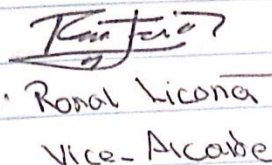 Ronal Licona
Vice-Alcalde